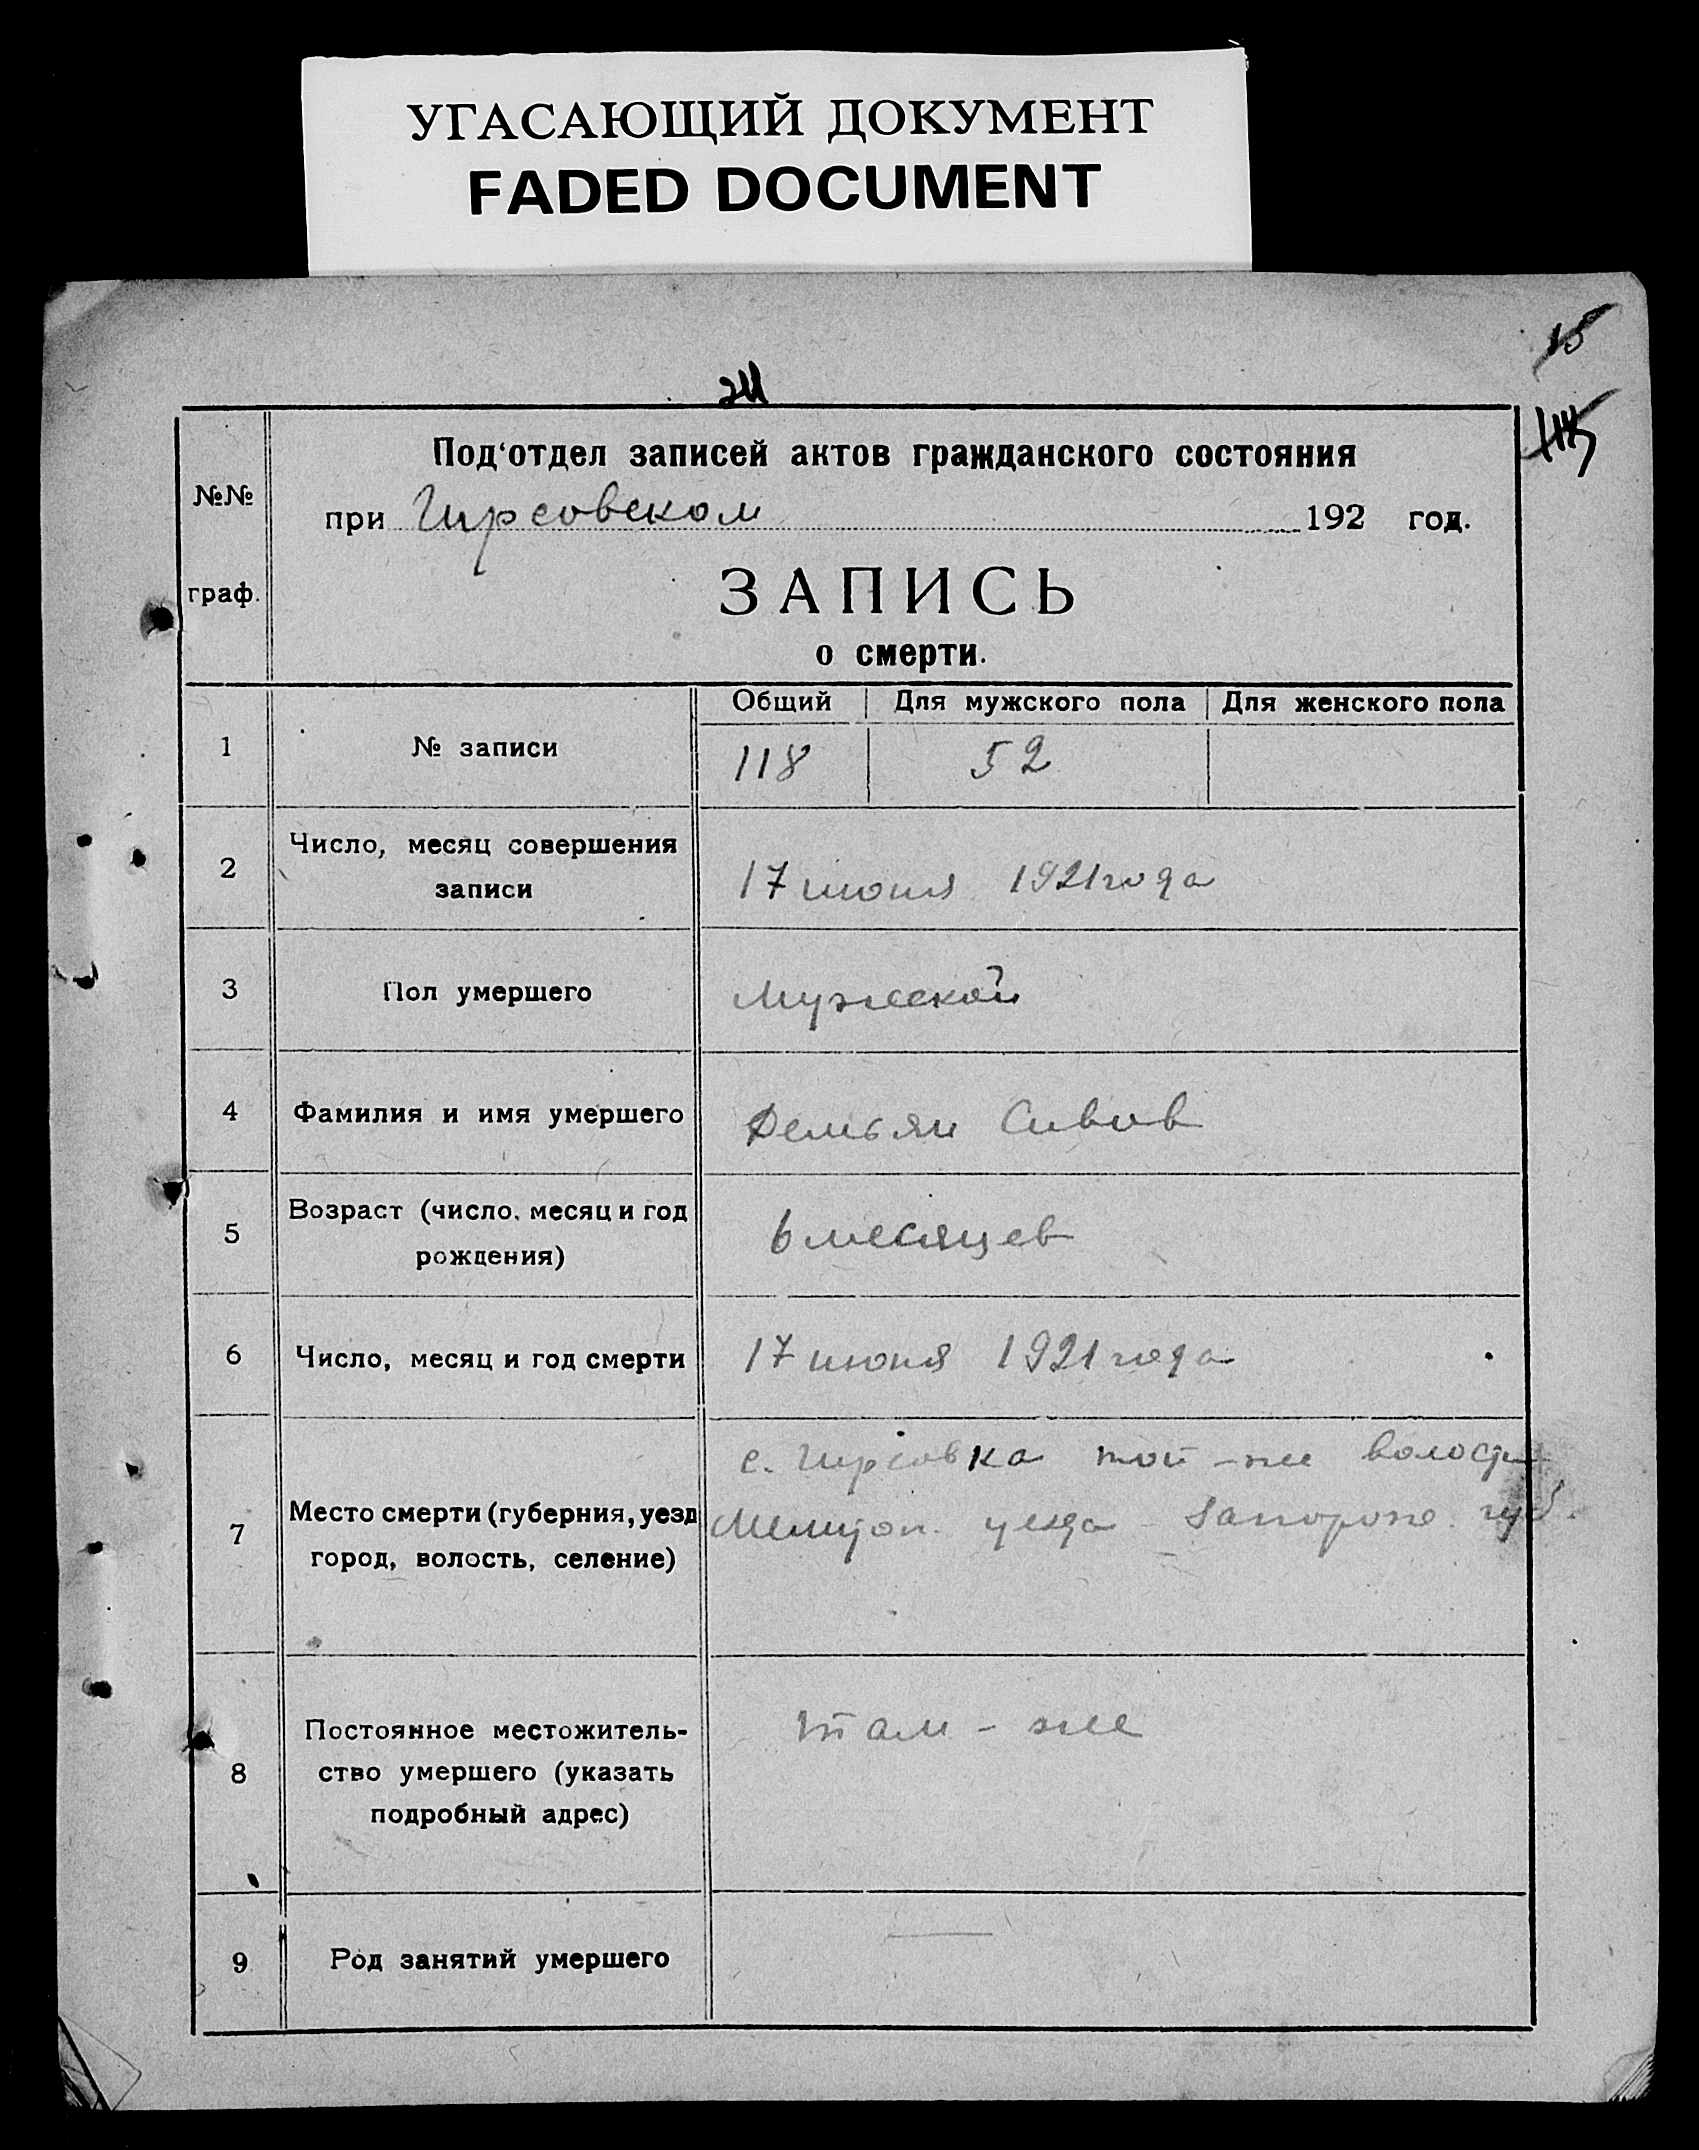 УГАСАЮЩИЙ ДОКУМЕНТ
FADED DOCUMENT
15
№№
граф.
Под'отдел записей актов гражданского состояния
при Гирсовском 192 год.
ЗАПИСЬ
о смерти.
Общий Для мужского пола Для женского пола
1 № записи 118 52
2 Число, месяц совершения
записи 17 июня 1921 года
3 Пол умершего Мужской
4 Фамилия и имя умершего Демьян Сивов
5 Возраст (число, месяц и год
рождения) 6 месяцев
6 Число, месяц и год смерти 17 июня 1921 года
с. Гирсовка той-же волости
7 Место смерти (губерния, уезд Мелитоп. уезда Запорож. губ.
город, волость, селение)
8 Постоянное местожитель-
ство умершего (указать
подробный адрес) там-же
9 Род занятий умершего —